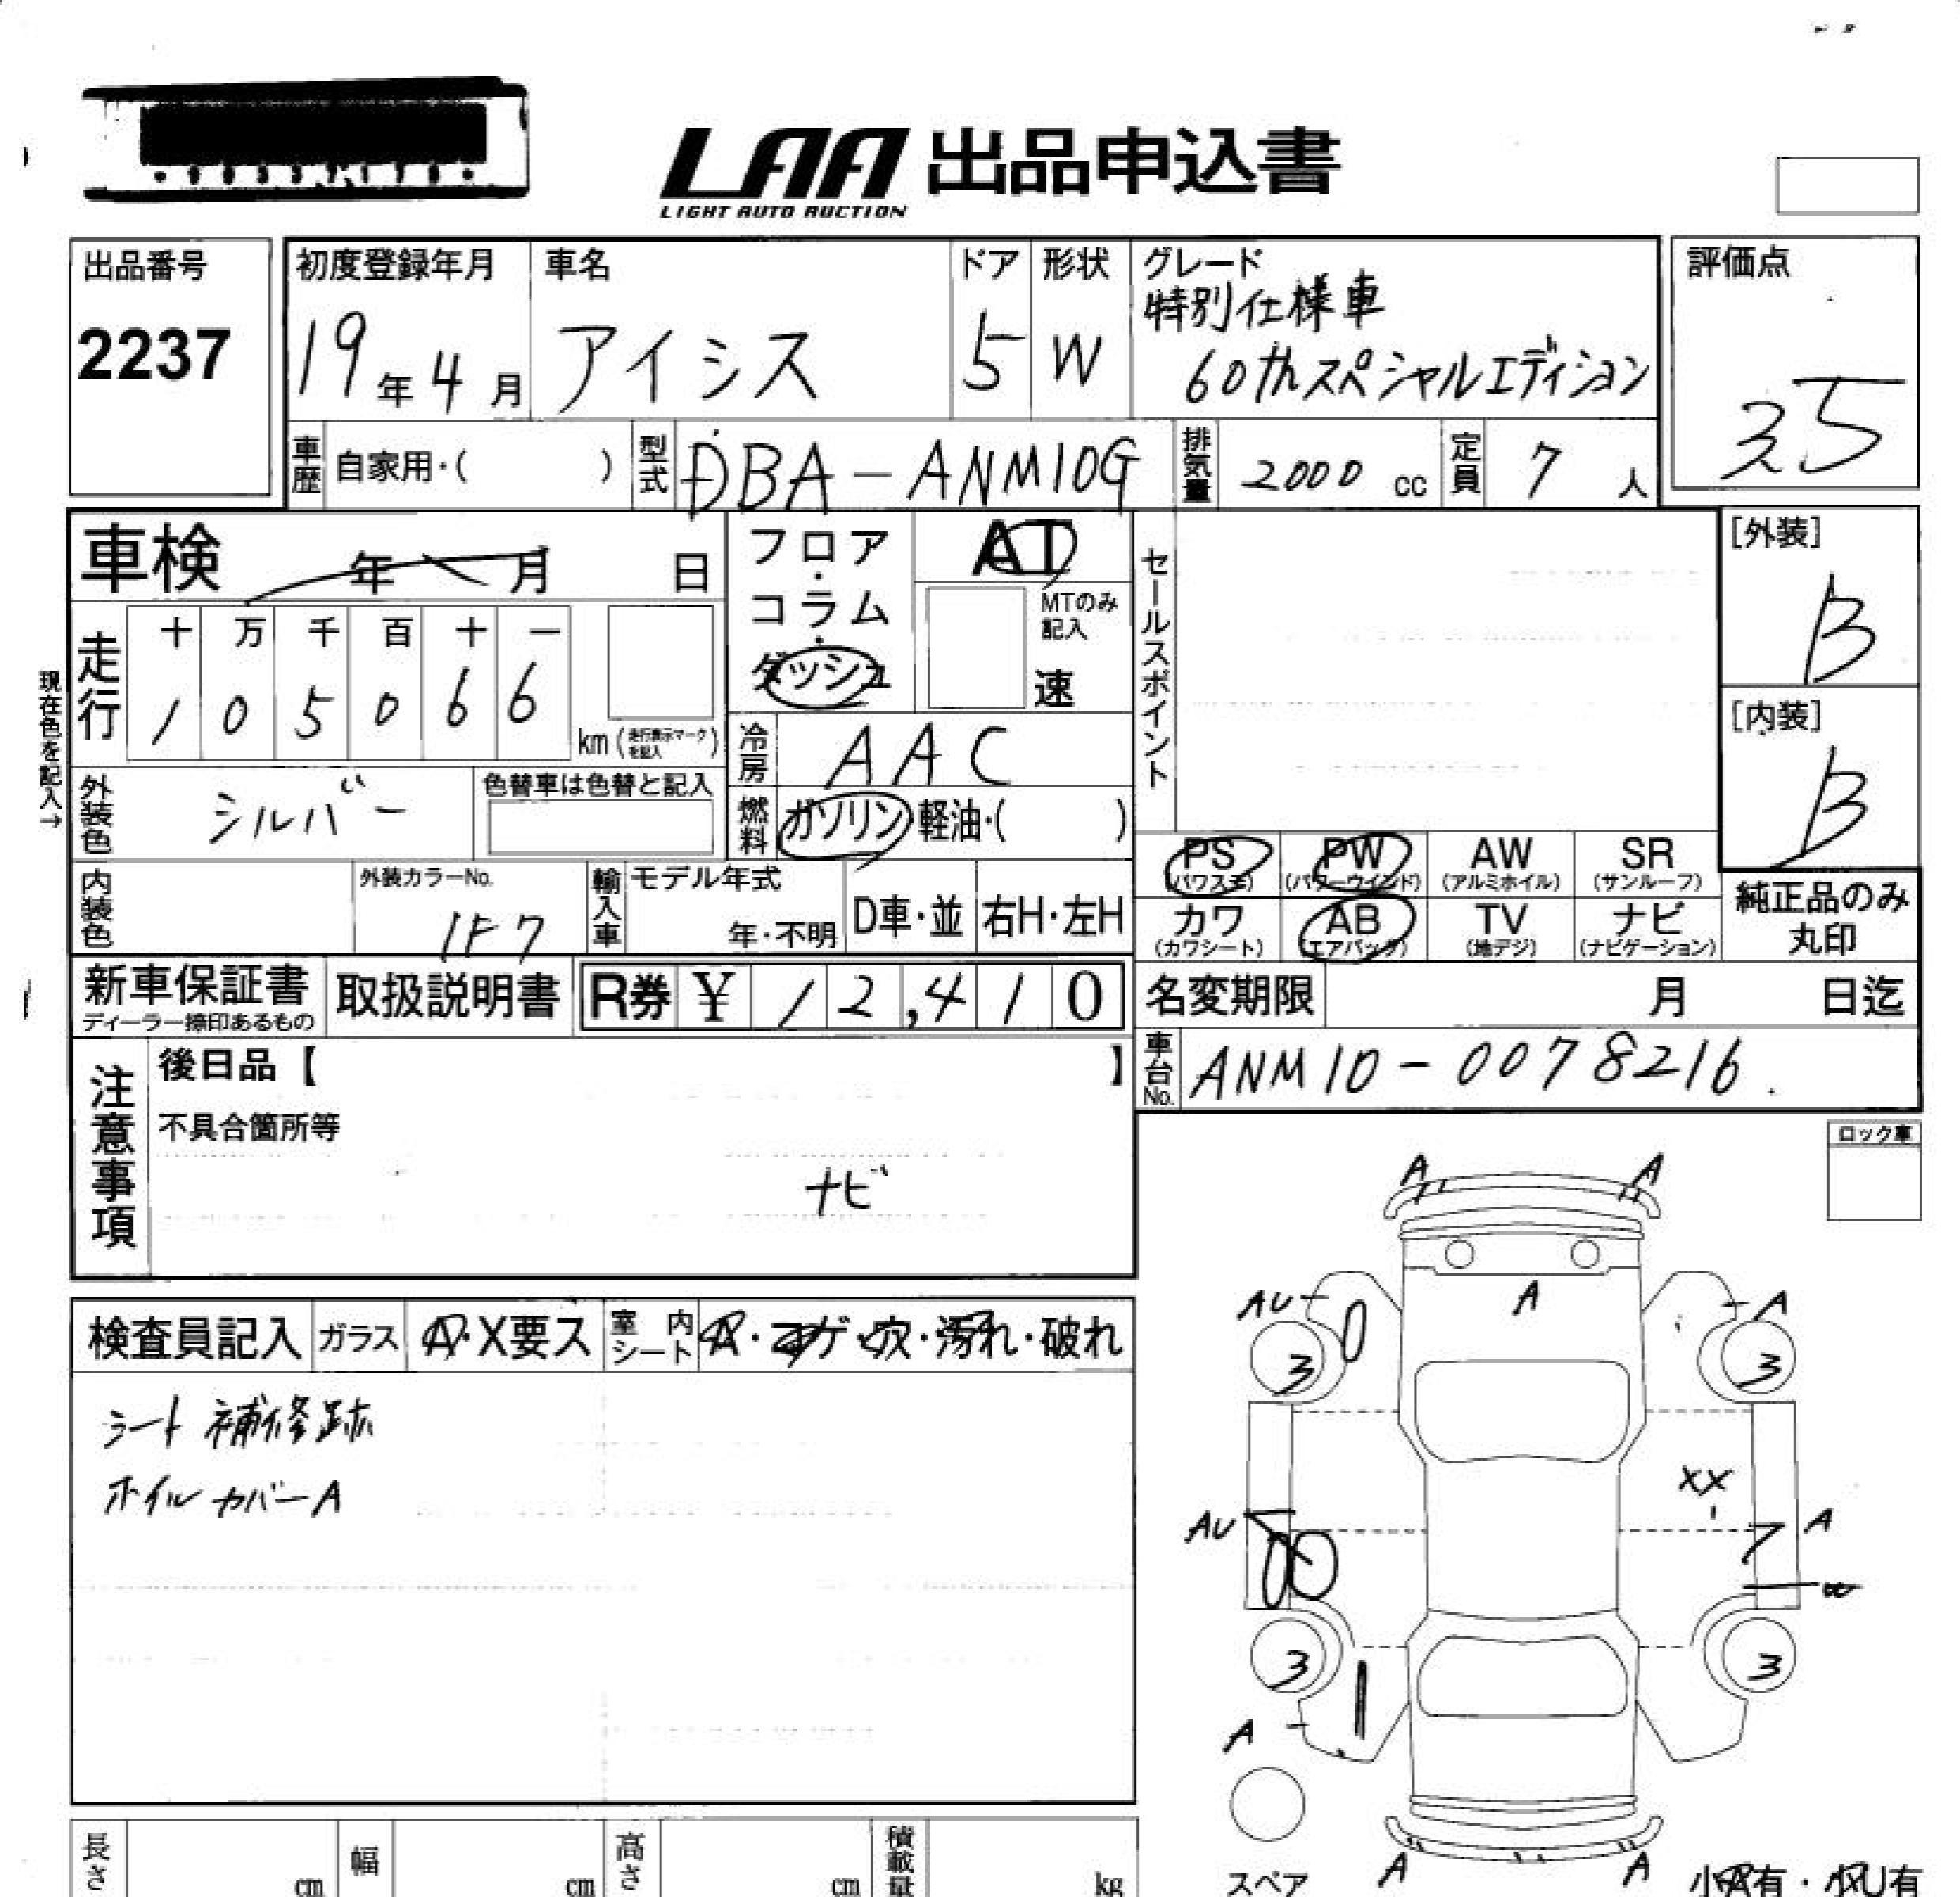 LAA 出品申込書
LIGHT AUTO AUCTION
出品番号
2237
初度登録年月
19年4月
車名
アイシス
ドア
5
形状
W
グレード
特別仕様車
60thスペシャルエディション
評価点
3.5
車歴 自家用・( )
型式 DBA-ANM10G
排気量 2000 cc
定員 7 人
車検 年 月 日
フロア・コラム・ダッシュ
AT
MTのみ記入
速
セールスポイント
[外装]
B
[内装]
B
現在色を記入→
走行
十 万 千 百 十 一
1 0 5 0 6 6
km (走行表示マークを記入)
冷房 AAC
燃料 ガソリン 軽油・( )
外装色 シルバー
色替車は色替と記入
内装色
外装カラーNo.
1F7
輸入車
モデル年式
年・不明
D車・並
右H・左H
PS (パワステ)
PW (パワーウインド)
AW (アルミホイル)
SR (サンルーフ)
カワ (カワシート)
AB (エアバッグ)
TV (地デジ)
ナビ (ナビゲーション)
純正品のみ
丸印
新車保証書
ディーラー捺印あるもの
取扱説明書
R券 ¥ 12,410
名変期限 月 日迄
車台No. ANM10-0078216
注意事項
後日品【 】
不具合箇所等
ナビ
ロック車
検査員記入
ガラス A・X要ス
室内シート A・コゲ・穴・汚れ・破れ
シート補修跡
ホイルカバーA
A A
A
AU A
3 3
XX
AU A
3 3
A
A A
スペア
小A有・小U有
長さ cm
幅 cm
高さ cm
積載量 kg